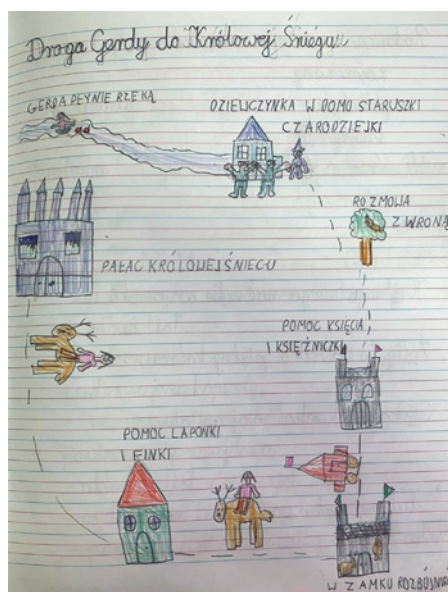 Droga Gerdy do Królowej Śniegu
GERDA PŁYNIE RZEKĄ
DZIEWCZYNKA W DOMU STARUSZKI
CZARODZIEJKI
ROZMOWA
Z WRONĄ
PAŁAC KRÓLOWEJ ŚNIEGU
POMOC KSIĘCIA
I KSIĘŻNICZKI
POMOC LAPONKI
I FINKI
W ZAMKU ROZBÓJNIKÓW